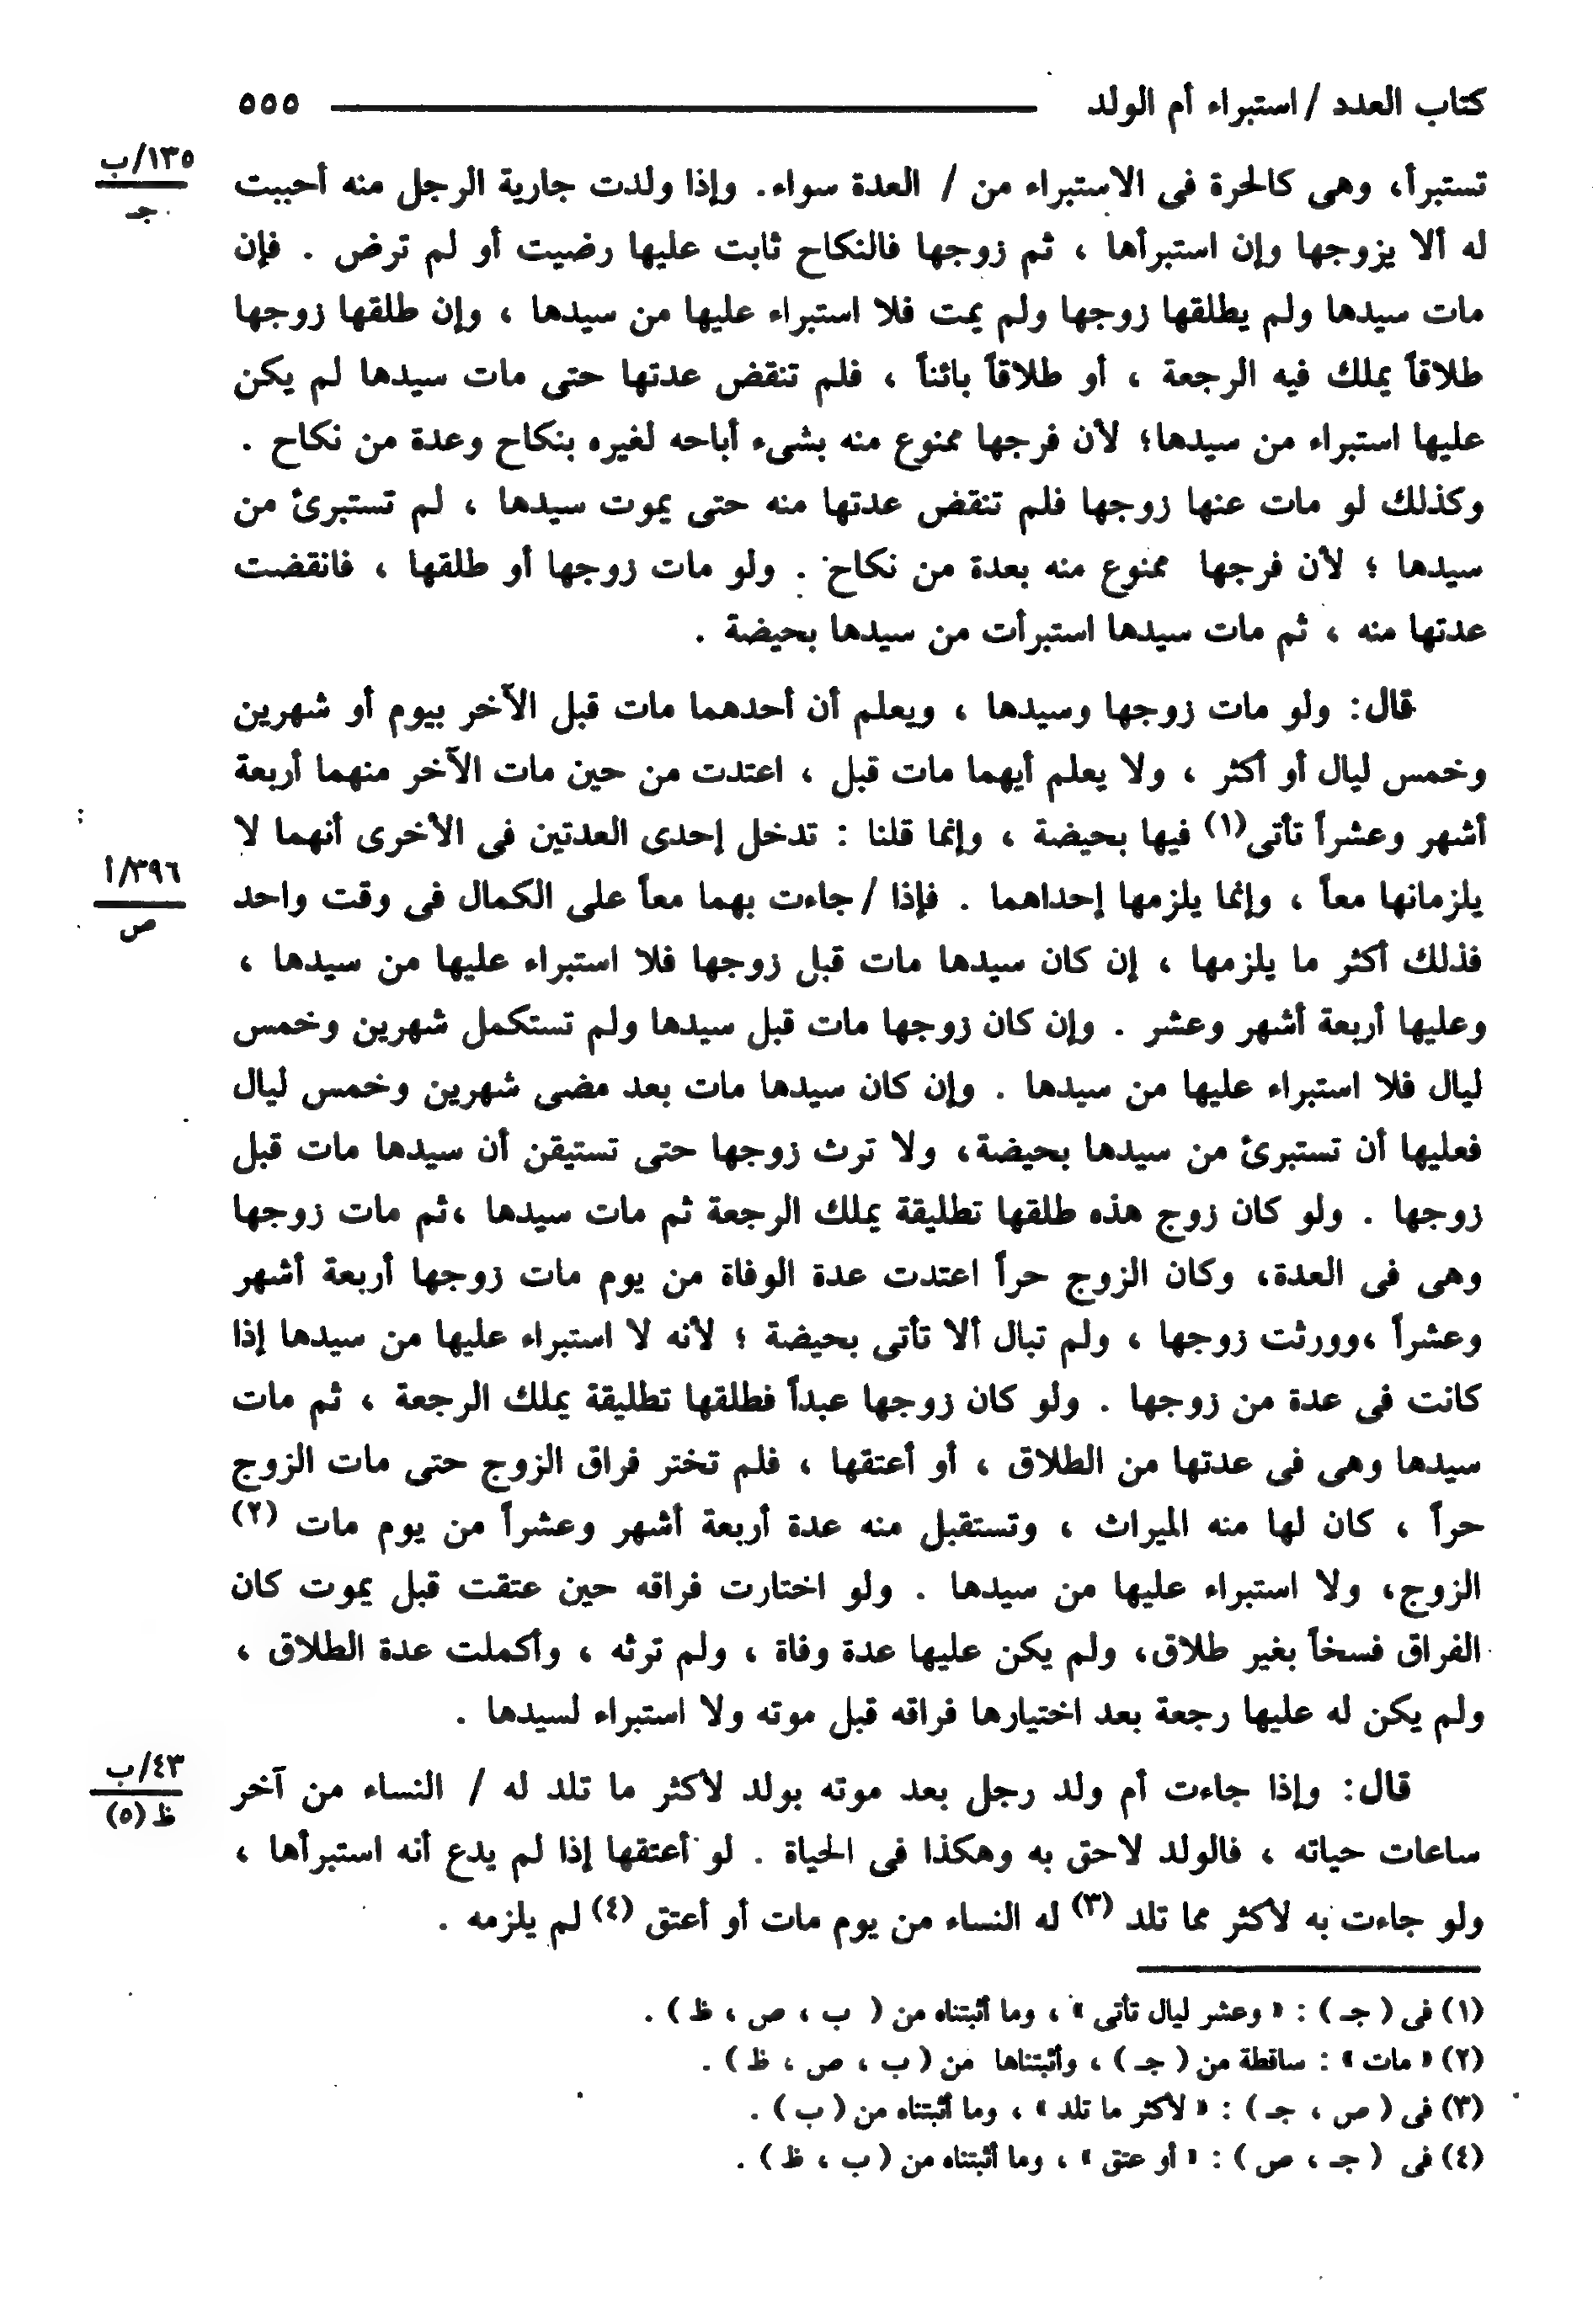 كتاب العدد / استبراء أم الولد ٥٥٥
تستبرأ، وهى كالحرة فى الاستبراء من / العدة سواء. وإذا ولدت جارية الرجل منه أحببت
١٣٥/ب
جـ
له ألا يزوجها وإن استبرأها ، ثم زوجها فالنكاح ثابت عليها رضيت أو لم ترض . فإن
مات سيدها ولم يطلقها زوجها ولم يمت فلا استبراء عليها من سيدها ، وإن طلقها زوجها
طلاقاً يملك فيه الرجعة ، أو طلاقاً بائناً ، فلم تنقض عدتها حتى مات سيدها لم يكن
عليها استبراء من سيدها؛ لأن فرجها ممنوع منه بشىء أباحه لغيره بنكاح وعدة من نكاح .
وكذلك لو مات عنها زوجها فلم تنقض عدتها منه حتى يموت سيدها ، لم تستبرئ من
سيدها ؛ لأن فرجها ممنوع منه بعدة من نكاح . ولو مات زوجها أو طلقها ، فانقضت
عدتها منه ، ثم مات سيدها استبرأت من سيدها بحيضة .
قال: ولو مات زوجها وسيدها ، ويعلم أن أحدهما مات قبل الآخر بيوم أو شهرين
وخمس ليال أو أكثر ، ولا يعلم أيهما مات قبل ، اعتدت من حين مات الآخر منهما أربعة
أشهر وعشراً تأتى(١) فيها بحيضة ، وإنما قلنا : تدخل إحدى العدتين فى الأخرى أنهما لا
يلزمانها معاً ، وإنما يلزمها إحداهما . فإذا / جاءت بهما معاً على الكمال فى وقت واحد
٣٩٦/أ
ص
فذلك أكثر ما يلزمها ، إن كان سيدها مات قبل زوجها فلا استبراء عليها من سيدها ،
وعليها أربعة أشهر وعشر . وإن كان زوجها مات قبل سيدها ولم تستكمل شهرين وخمس
ليال فلا استبراء عليها من سيدها . وإن كان سيدها مات بعد مضى شهرين وخمس ليال
فعليها أن تستبرئ من سيدها بحيضة، ولا ترث زوجها حتى تستيقن أن سيدها مات قبل
زوجها . ولو كان زوج هذه طلقها تطليقة يملك الرجعة ثم مات سيدها ،ثم مات زوجها
وهى فى العدة، وكان الزوج حراً اعتدت عدة الوفاة من يوم مات زوجها أربعة أشهر
وعشراً ،وورثت زوجها ، ولم تبال ألا تأتى بحيضة ؛ لأنه لا استبراء عليها من سيدها إذا
كانت فى عدة من زوجها . ولو كان زوجها عبداً فطلقها تطليقة يملك الرجعة ، ثم مات
سيدها وهى فى عدتها من الطلاق ، أو أعتقها ، فلم تختر فراق الزوج حتى مات الزوج
حراً ، كان لها منه الميراث ، وتستقبل منه عدة أربعة أشهر وعشراً من يوم مات (٢)
الزوج، ولا استبراء عليها من سيدها . ولو اختارت فراقه حين عتقت قبل يموت كان
الفراق فسخاً بغير طلاق، ولم يكن عليها عدة وفاة ، ولم ترثه ، وأكملت عدة الطلاق ،
ولم يكن له عليها رجعة بعد اختيارها فراقه قبل موته ولا استبراء لسيدها .
قال: وإذا جاءت أم ولد رجل بعد موته بولد لأكثر ما تلد له / النساء من آخر
٤٣/ب
ظ (٥)
ساعات حياته ، فالولد لاحق به وهكذا فى الحياة . لو أعتقها إذا لم يدع أنه استبرأها ،
ولو جاءت به لأكثر مما تلد (٣) له النساء من يوم مات أو أعتق (٤) لم يلزمه .
(١) فى ( جـ ) : « وعشر ليال تأتى » ، وما أثبتناه من ( ب ، ص ، ظ ) .
(٢) « مات » : ساقطة من ( جـ ) ، وأثبتناها من ( ب ، ص ، ظ ) .
(٣) فى ( ص ، جـ ) : « لأكثر ما تلد » ، وما أثبتناه من ( ب ) .
(٤) فى ( جـ ، ص ) : « أو عتق » ، وما أثبتناه من ( ب ، ظ ) .